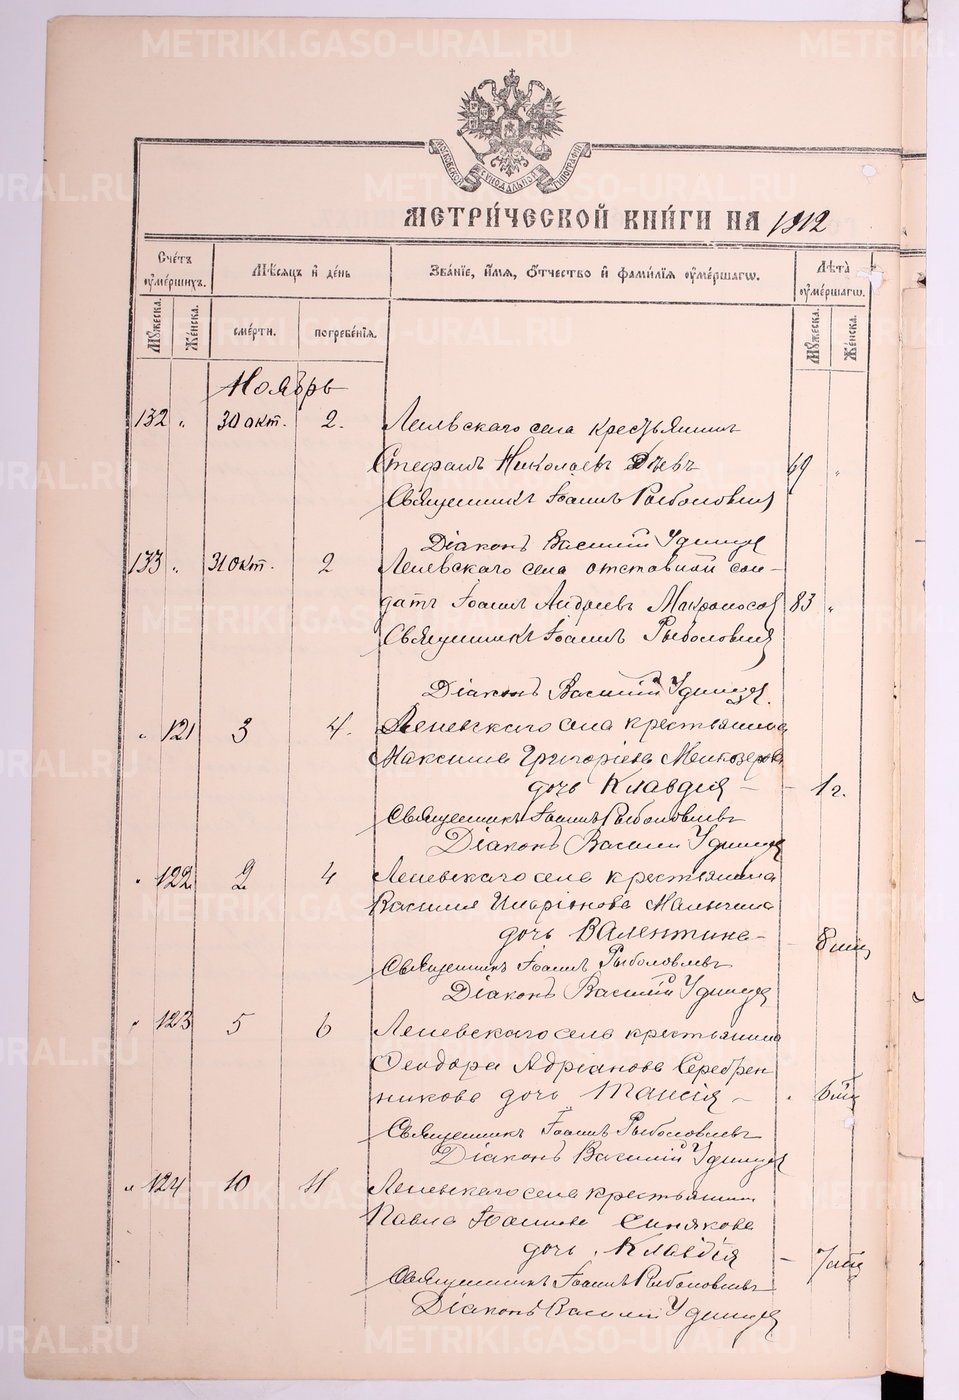 МОСКОВСКОЙ СѴНОДАЛЬНОЙ ТИПОГРАФІИ
МЕТРИ́ЧЕСКОЙ КНИ́ГИ НА 1912
Сче́тъ ᲂуме́ршихъ.
Мѣ́сяцъ и де́нь
Зва́нїе, и́мя, ѻ́тчество и фами́лїя ᲂуме́ршагѡ.
Лѣта̀ ᲂуме́ршагѡ.
Мꙋ́жеска.
Же́нска.
сме́рти.
погребе́нїя.
Мꙋ́жеска.
Же́нска.
Ноябрь
132 " 30 окт. 2. Лепевскаго села крестьянинъ
Стефанъ Николаевъ 69 "
Священникъ Іоаннъ Рыболовлев
Діаконъ Василій Удинцев
133 " 31 окт. 2 Лепевскаго села отставной сол-
датъ Іоаннъ Андреевъ Макроносов 83 "
Священникъ Іоаннъ Рыболовлев
Діаконъ Василій Удинцев.
" 121 3 4. Лепевскаго села крестьянина
Максима Григоріева
дочь Клавдія - - 1 г.
Священникъ Іоаннъ Рыболовлевъ
Діаконъ Василий Удинцев
" 122 2 4 Лепевскаго села крестьянина
Василия Иларіонова Малычева
дочь Валентина - - 8 мц
Священникъ Іоаннъ Рыболовлевъ
Діаконъ Василій Удинцев
" 123 5 6 Лепевскаго села крестьянина
Ѳеодора Адріанова Серебрен
никова дочь Таисія - " 6 мц
Священникъ Іоаннъ Рыболовлевъ
Діаконъ Василій Удинцев
" 124 10 11 Лепевскаго села крестьянина
Павла Іоаннова Синякова
дочь Клавдія - 7 мц
Священникъ Іоаннъ Рыболовлевъ
Діаконъ Василий Удинцев